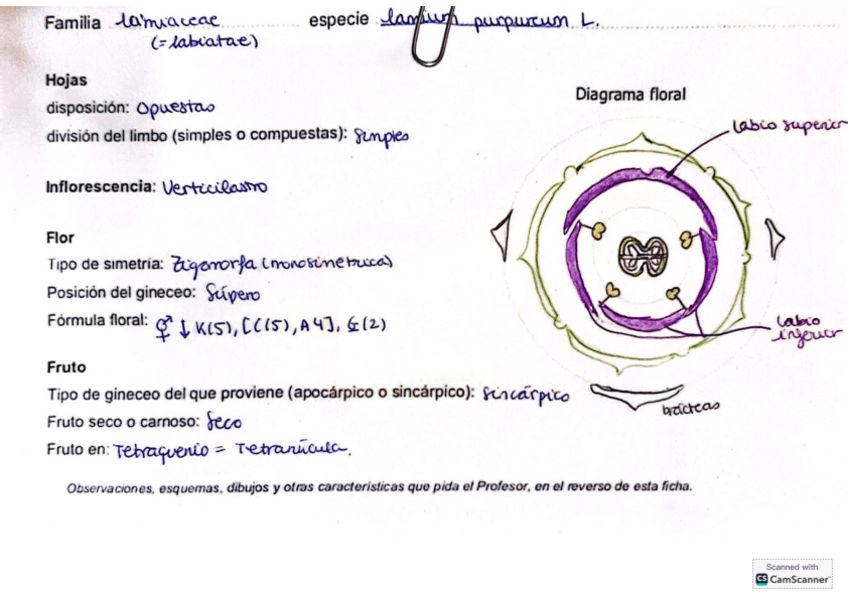 Familia Lamiaceae especie Lamium purpureum L.
(=labiatae)
Hojas
disposición: Opuestas
división del limbo (simples o compuestas): Simples
Inflorescencia: Verticilastro
Flor
Tipo de simetría: Zigomorfa (monosimetrica)
Posición del gineceo: Súpero
Fórmula floral: ⚥ ↓ K(5), [C(5), A4], G(2)
Fruto
Tipo de gineceo del que proviene (apocárpico o sincárpico): Sincárpico
Fruto seco o carnoso: Seco
Fruto en: Tetraquenio = Tetranúcula.
Diagrama floral
labio superior
labio inferior
brácteas
Observaciones, esquemas, dibujos y otras características que pida el Profesor, en el reverso de esta ficha.
Scanned with
CS CamScanner